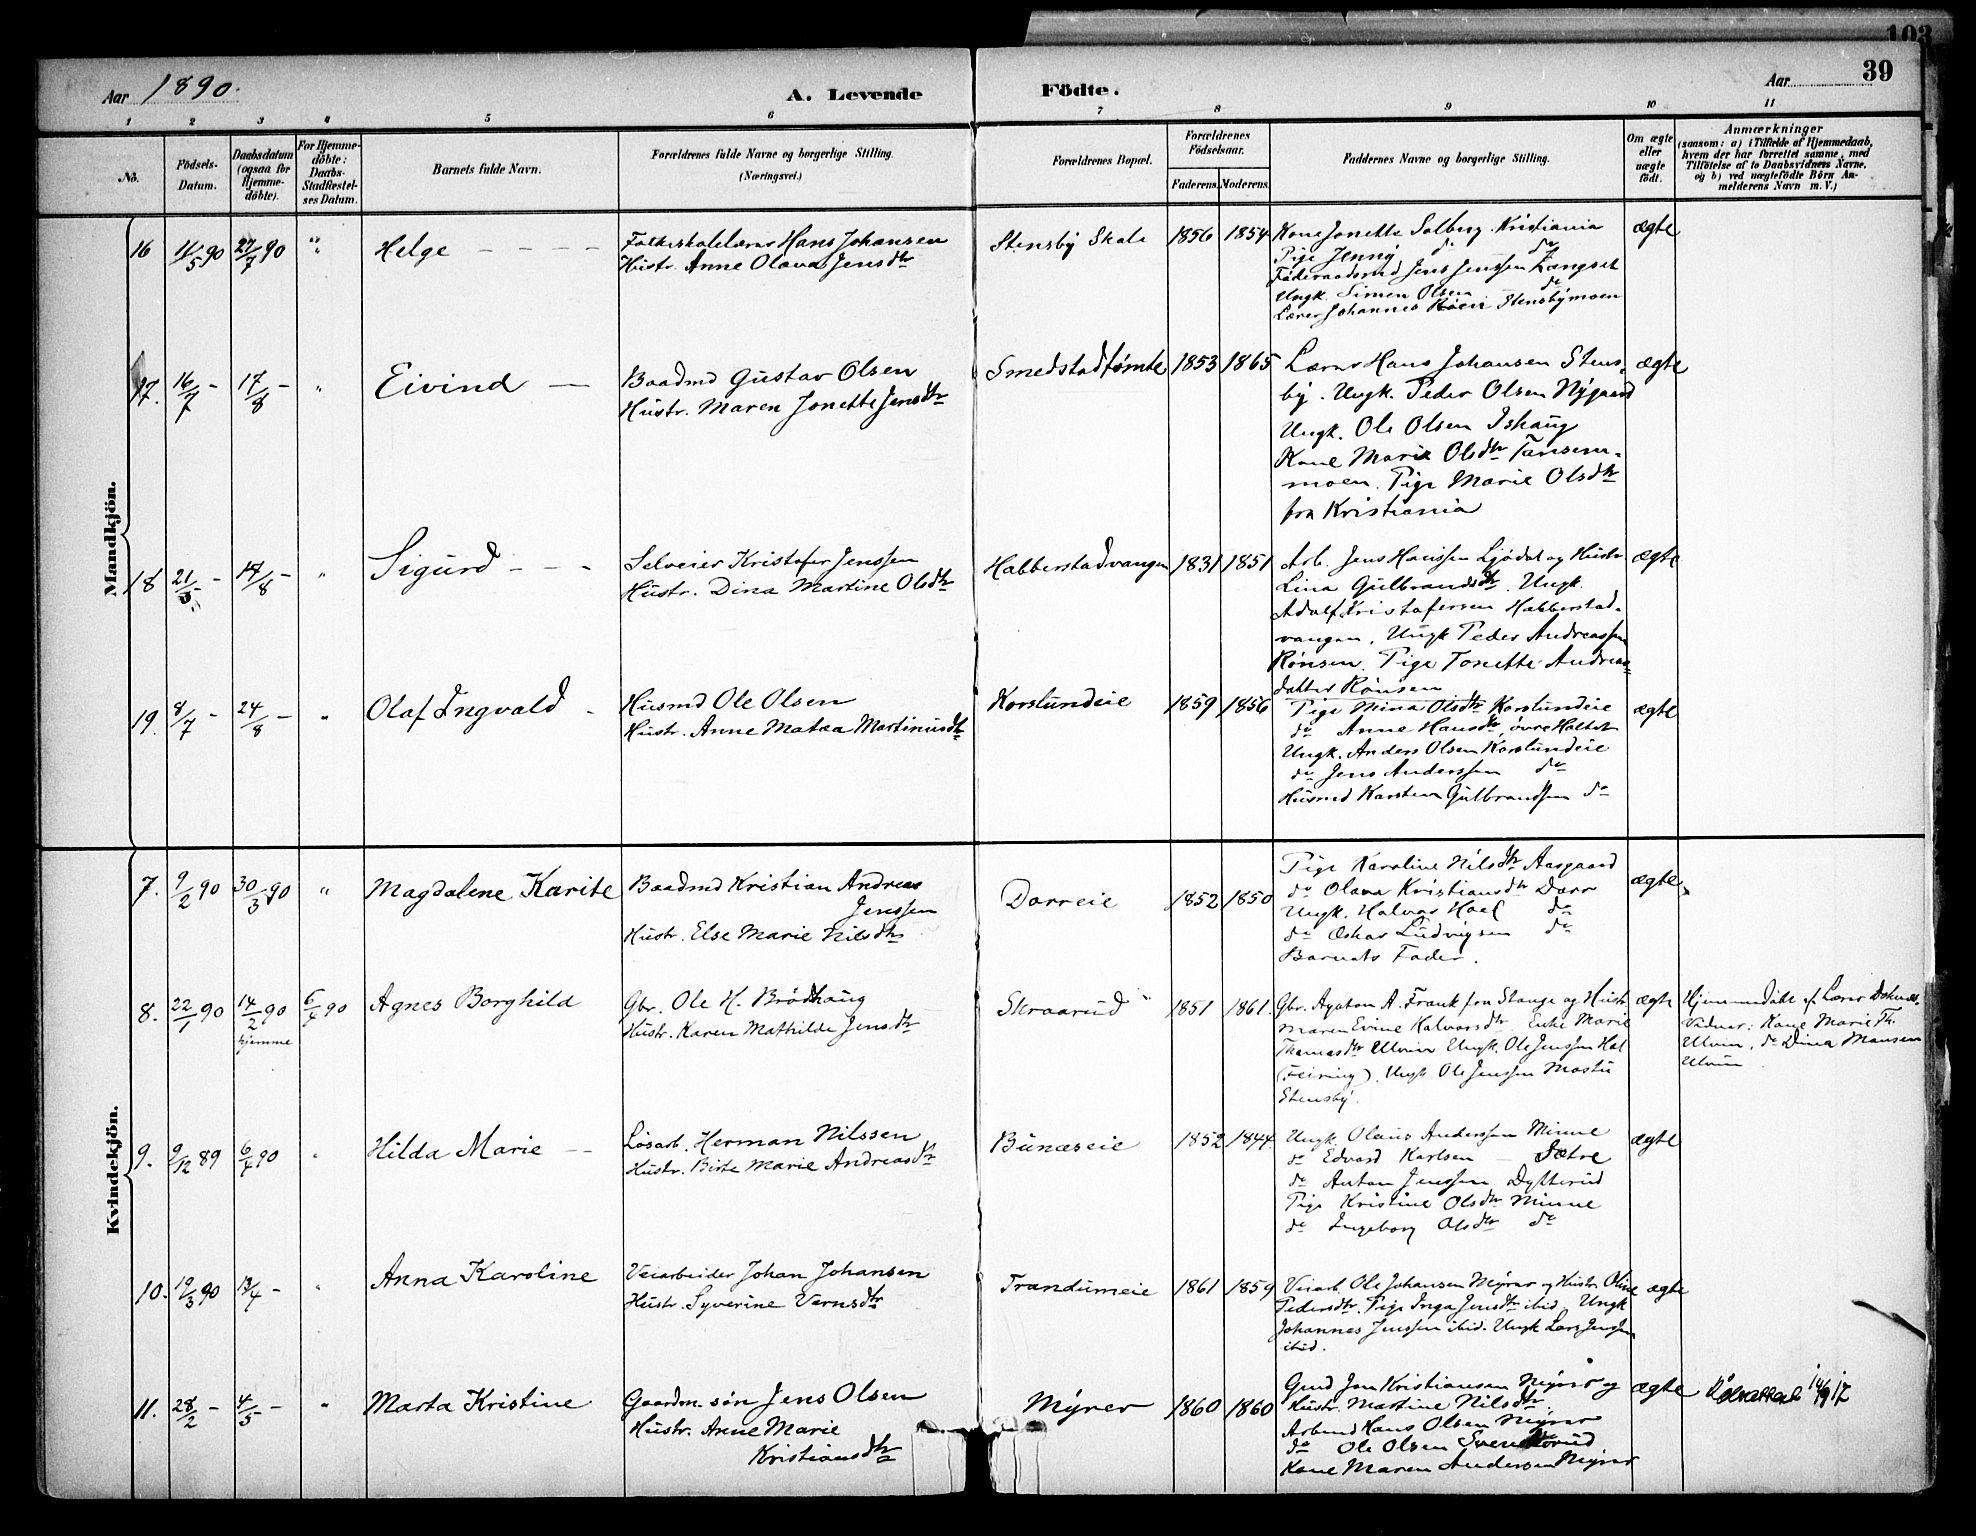 103
39
Aar 1890.
A. Levende Födte.
Aar
1 2 3 4 5 6 7 8 9 10 11
No.
Födsels-Datum.
Daabsdatum (ogsaa for Hjemme-döbte).
For Hjemme-döbte: Daabs-Stadfæstel-ses Datum.
Barnets fulde Navn.
Forældrenes fulde Navne og borgerlige Stilling. (Næringsvei.)
Forældrenes Bopæl.
Forældrenes Födselsaar.
Faderens. Moderens.
Faddernes Navne og borgerlige Stilling.
Om ægte eller uægte födt.
Anmærkninger
(saasom: a) i Tilfælde af Hjemmedaab, hvem der har forrettet samme, med Tilföielse af to Daabsvidners Navne, og b) ved uægtefödte Börn An-melderens Navn m. V.)
Mandkjön.
16 11/5 90 27/7 90 " Helge
Folkeskolelærer Hans Johansen
Hustr. Anne Olava Jensdtr
Stensby Skole 1856 1854
Kone Jonette Solberg Kristiania
Pige Jenny do do
Föderaadsmd Jens Jenssen Længset
Ungk. Simen Olsen do
Lærer Johannes Stensbymoen
ægte
17. 16/7 - 17/8 - " Eivind
Baadmd Gustav Olsen
Hustr. Maren Jonette Jensdtr
Smedstadtømte 1853 1865
Lærer Hans Johansen Stens-
by. Ungk. Peder Olsen Nygaard
Ungk. Ole Olsen Ishaug
Kone Marie Olsdtr Tansem-
moen. Pige Marie Olsdtr
fra Kristiania
ægte
18 21/5 - 17/8 - " Sigurd
Selveier Kristofer Jenssen
Hustr. Dina Martine Olsdtr
Habberstadvangen 1831 1851
Arb. Jens Hanssen Ljødal og Hustr
Lina Gulbrandsdtr. Ungk.
Adolf Kristofersen Habberstad-
vangen, Ungk Peder Andreassen
Rønsen. Pige Tonette Andreas-
datter Rønsen
ægte
19. 8/7 - 24/8 - " Olaf Ingvald
Husmd Ole Olsen
Hustr. Anne Matea Martinusdtr
Korslundeie 1859 1856
Pige Mina Olsdtr Korslundeie
do Anne Hansdtr, övre Holtet
Ungk. Anders Olsen Korslundeie
do Jens Anderssen do
Husmd Karsten Gulbrandssen do
ægte
Kvindekjön.
7. 9/2 90 30/3 90 " Magdalene Karite
Baadmd Kristian Andreas
Jenssen
Hustr. Else Marie Nilsdtr
Dorreie 1852 1850
Pige Karoline Nilsdtr Aasgaard
do Olava Kristiansdtr Dorr
Ungk. Halvor Hoel do
do Oskar Ludvigsen do
Barnets Fader.
ægte
8. 22/1 90 14/2 90 hjemme 6/4 90 Agnes Borghild
Gbr. Ole H. Brödshaug
Hustr. Karen Mathilde Jensdtr
Skraarud 1851 1861
Gbr. Agaton A. Frank fra Stange og Hustr
Maren Evine Halvorsdtr Enke Marie
Thomasdtr Ulvin Ungk. Ole Jenssen Hol
(Feiring). Ungk Ole Jenssen Mostu
Stensby.
ægte
Hjemmedöbt af Lærer
Vidner: Kone Marie Th.
Ulvin, do Dina Monsen
Ulvin
9. 9/12 89 6/4 90 " Hilda Marie
Løsarb. Herman Nilssen
Hustr. Birte Marie Andreasdtr
Bunæseie 1852 1844
Ungk. Olaus Anderssen Minne
do Edvard Karlsen Sætre
do Anton Jenssen Dytterud
Pige Kristine Olsdtr Minne
do Ingeborg Olsdtr do
ægte
10. 19/3 90 13/4 - " Anna Karoline
Veiarbeider Johan Johansen
Hustr. Syverine Vernsdtr
Trandumeie 1861 1859
Veiarb. Ole Johansen Myrer og Hustr Oline
Pedersdtr. Pige Inga Jensdtr ibid. Ungk
Johannes Jenssen ibid. Ungk Lars Jenssen
ibid.
ægte
11. 28/2 - 4/5 - " Marta Kristine
Gaardm. søn Jens Olsen
Hustr. Anne Marie
Kristiansdtr
Myrer 1860 1860
Gmd Jon Kristiansen Myrer og
Hustr. Martine Nilsdtr.
Arbmd Hans Olsen Myrer
do Ole Olsen
Kone Maren Andersen Myrer
ægte